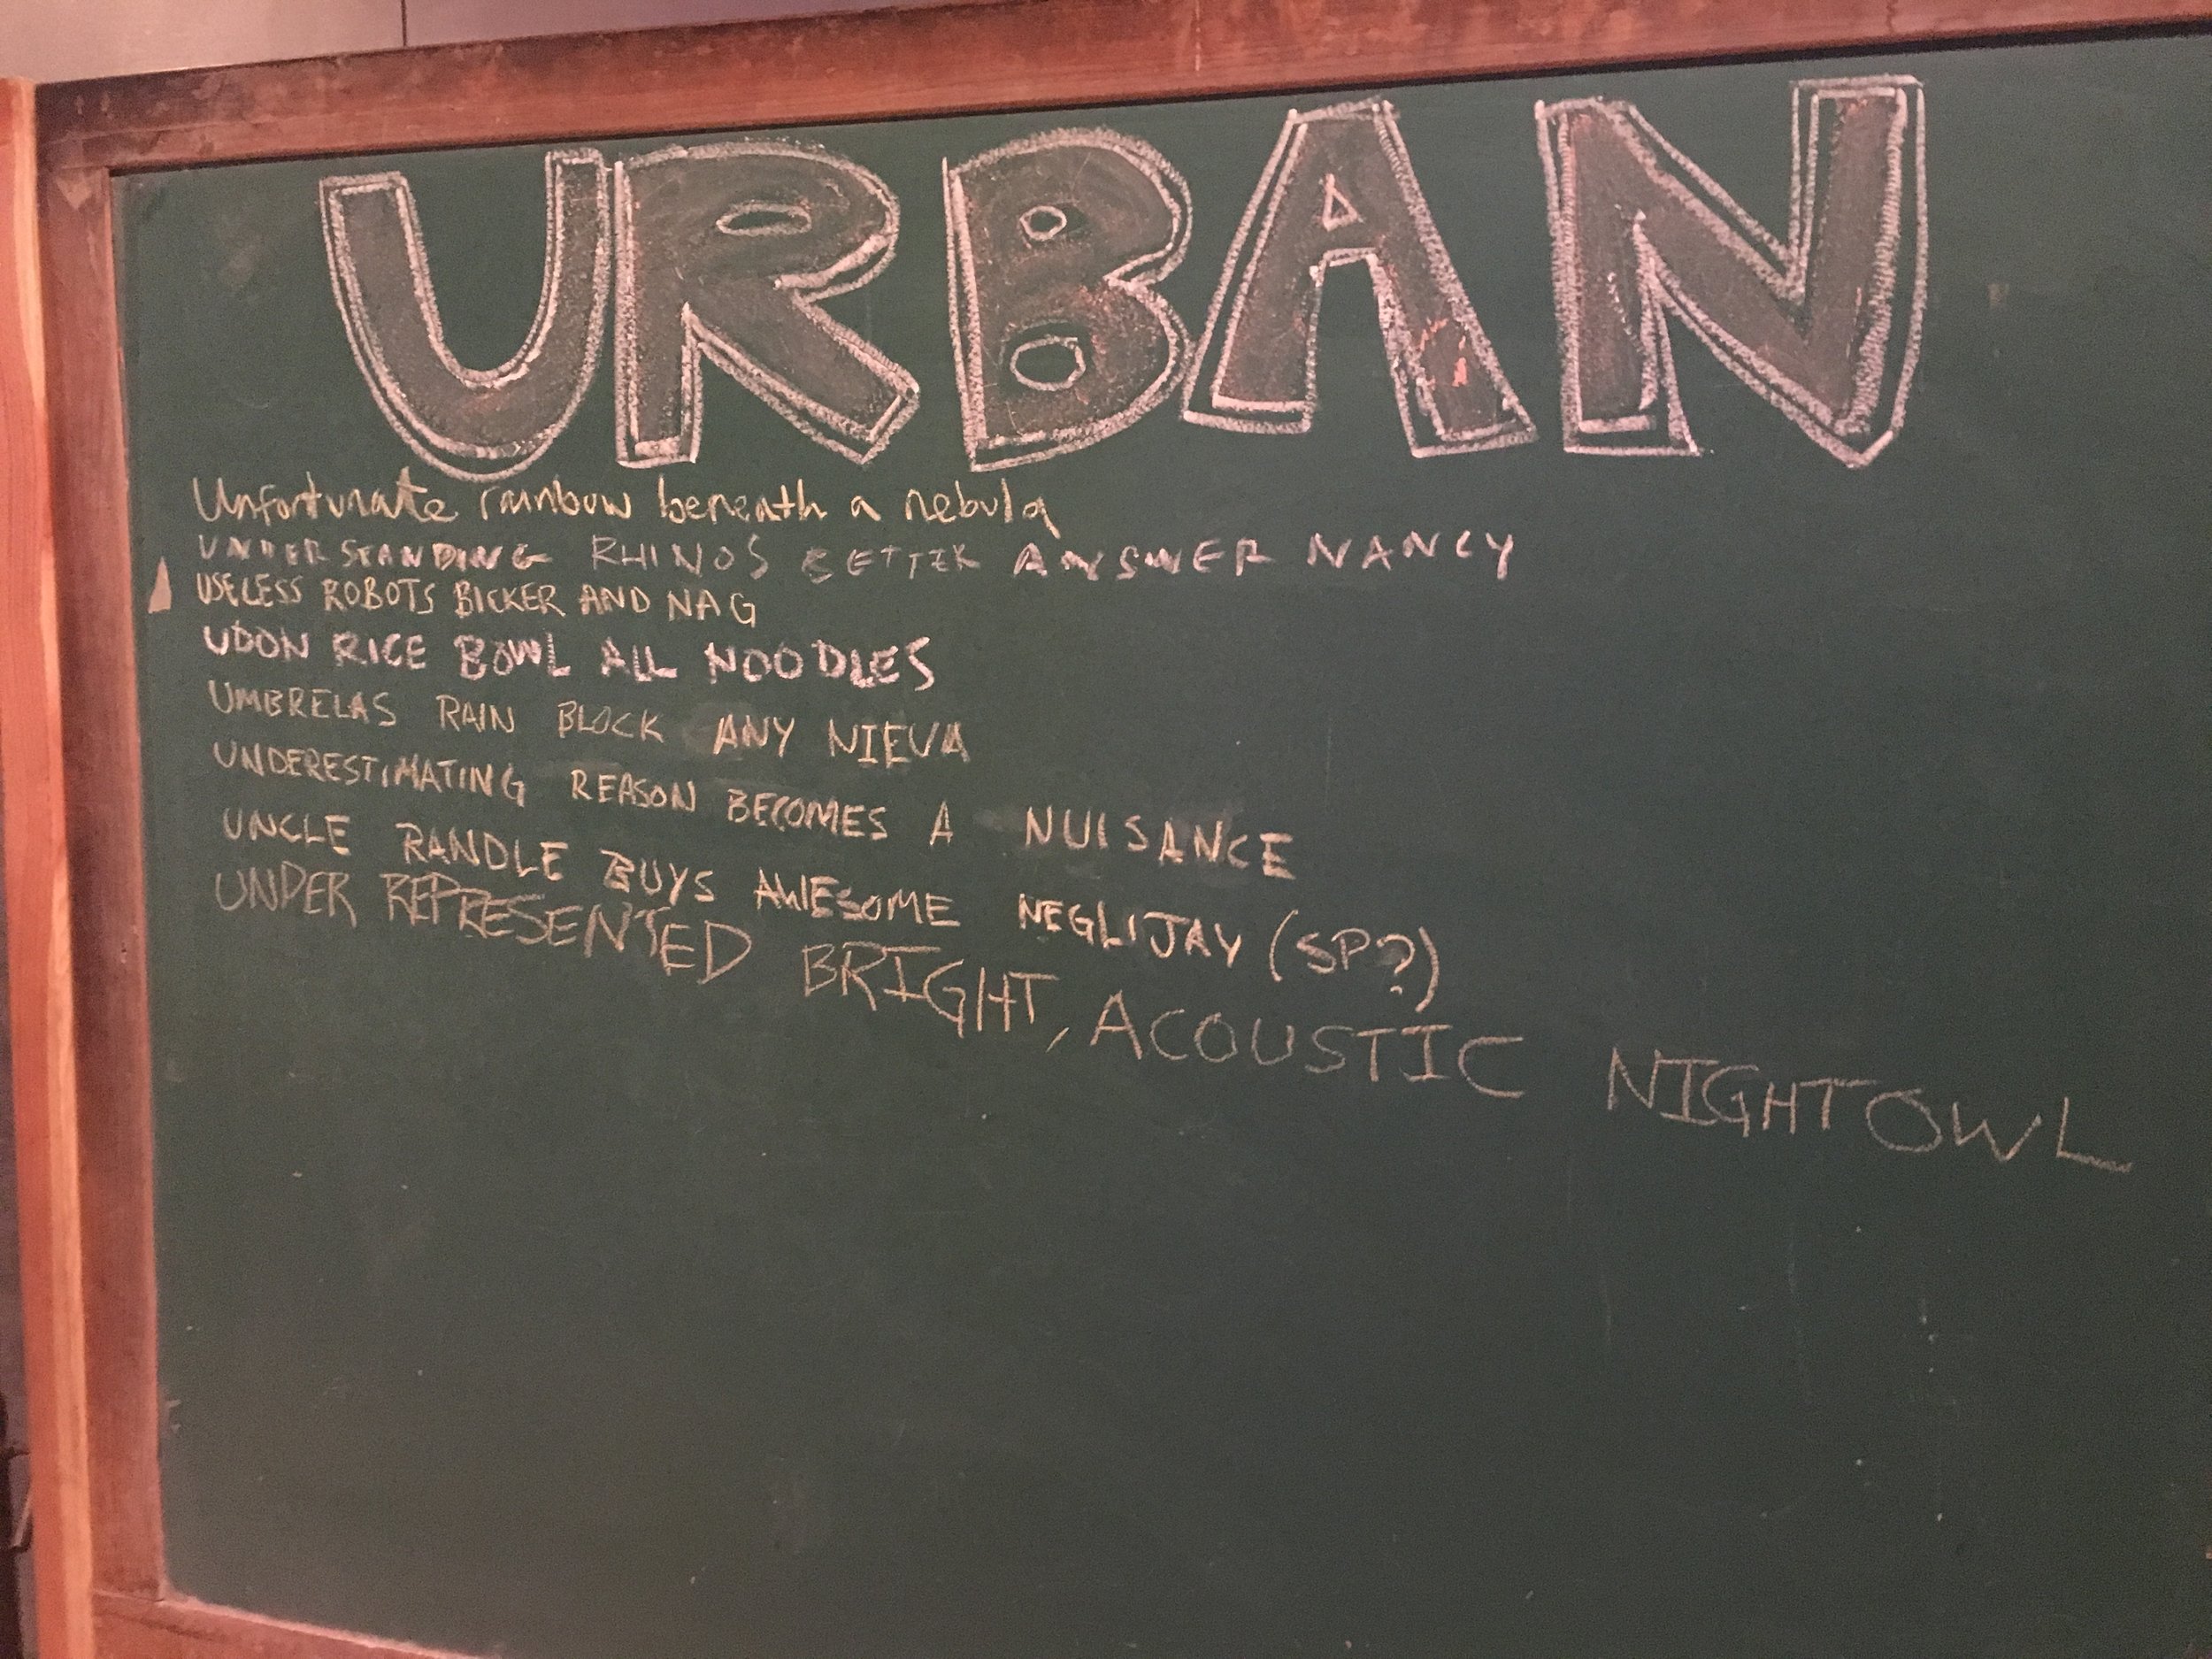 URBAN
Unfortunate rainbow beneath a nebula
UNDERSTANDING RHINOS BETTER ANSWER NANCY
USELESS ROBOTS BICKER AND NAG
UDON RICE BOWL ALL NOODLES
UMBRELAS RAIN BLOCK ANY NIEVA
UNDERESTIMATING REASON BECOMES A NUISANCE
UNCLE RANDLE BUYS AWESOME NEGLIJAY (SP?)
UNDER REPRESENTED BRIGHT, ACOUSTIC NIGHTOWL